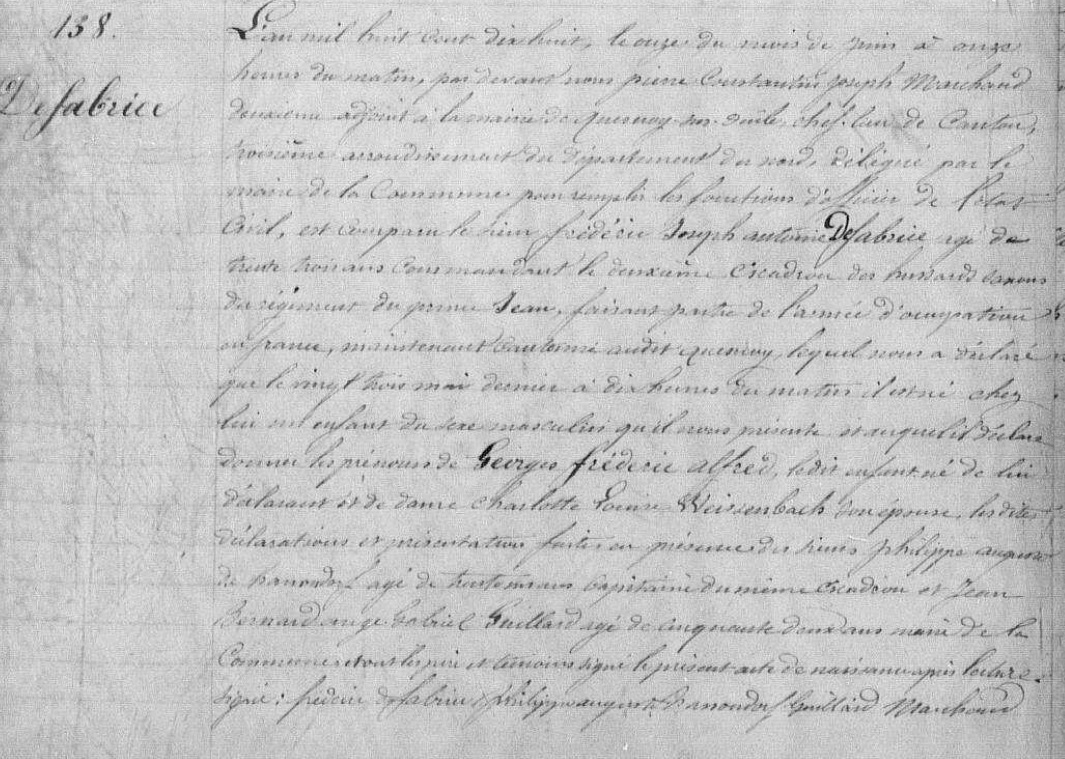 138.
Defabrice
L'an mil huit cent dix huit, le onze du mois de juin à onze
heures du matin, par devant nous pierre Constantin joseph Marchand
deuxieme adjoint à la mairie de quesnoy-sur-deule, chef-lieu de Canton,
troisième arrondissement du département du nord, délégué par le
maire de la Commune pour remplir les fonctions d'officier de l'etat
Civil, est comparu le sieur frédéric Joseph antoine Defabrice agé de
trente trois ans commandant le deuxième escadron des hussards saxons
du régiment du prince Jean, faisant partie de l'armée d'ocupation
en france, maintenant cantonné audit quesnoy, lequel nous a déclaré
que le vingt trois mai dernier à dix heures du matin il est né chez
lui un enfant du sexe masculin qu'il nous présente et auquel il déclare
donner les prénoms de Georges frédéric alfred, ledit enfant né de lui
déclarant et de dame Charlotte Louise Weissenbach son épouse, les dites
déclarations et présentation faites en présence des sieurs philippe auguste
de agé de ans Capitaine du même escadron et Jean
Bernard ange Gabriel Guillard agé de cinquante deux ans maire de la
Commune et ont les père et temoins signé le présent acte de naissance après lecture.
signé: frédéric defabrice philippe auguste Guillard Marchand